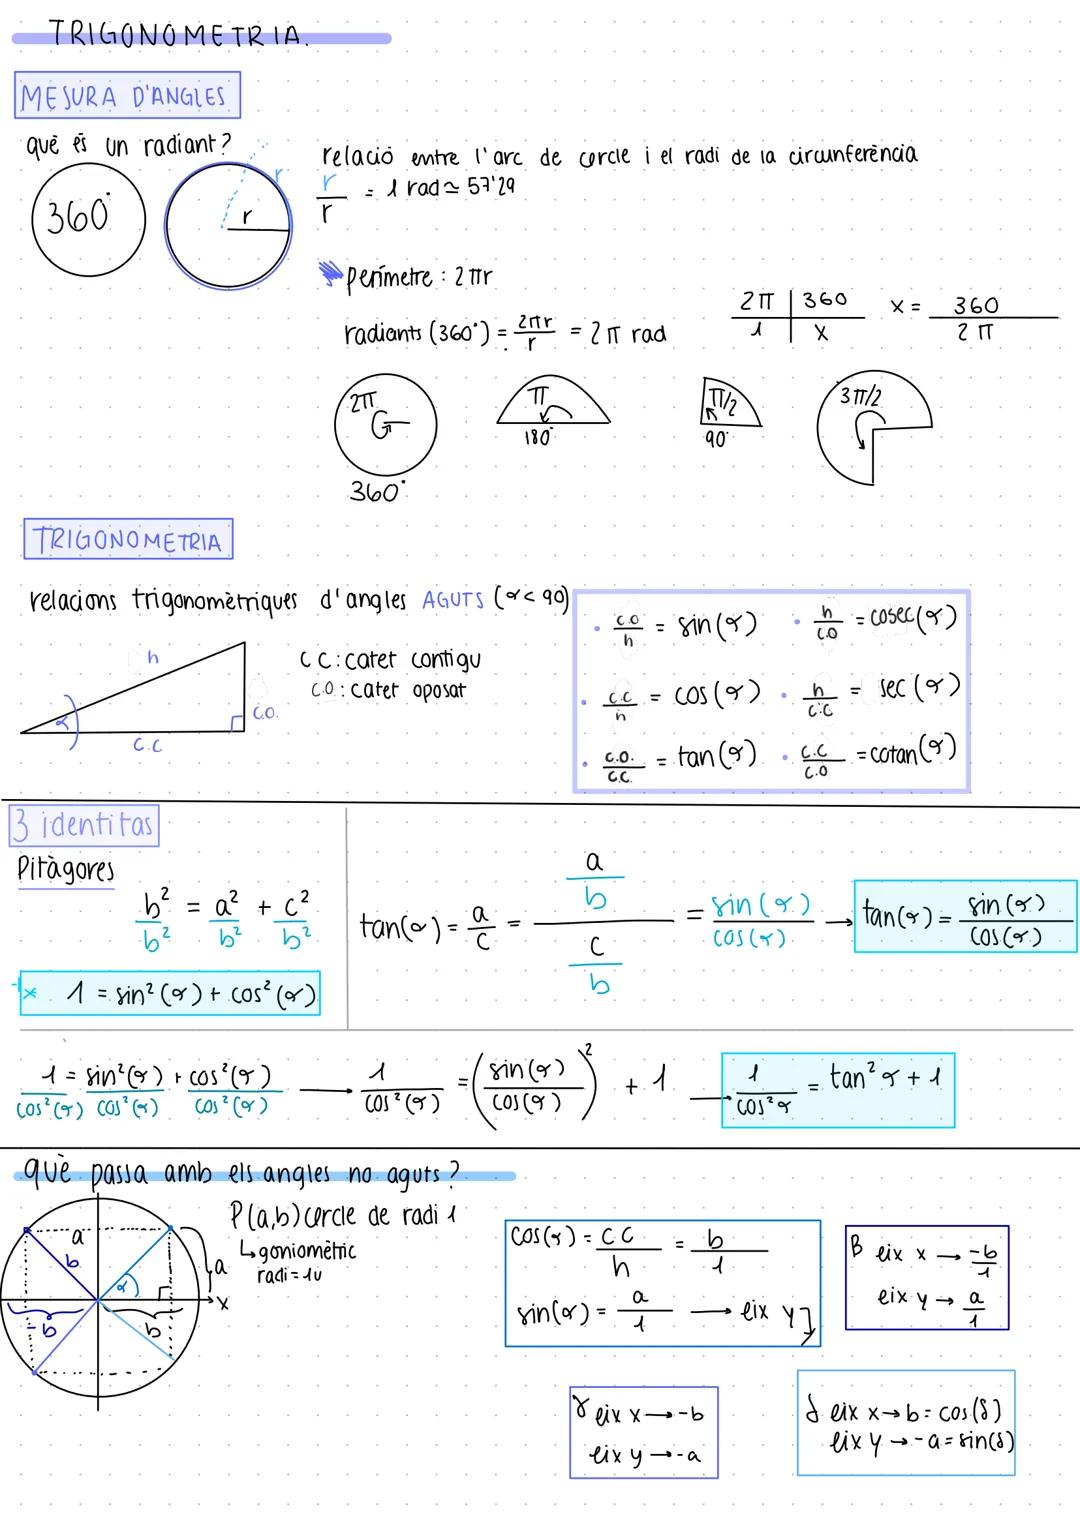 TRIGONOMETRIA.
MESURA D'ANGLES
què és un radiant?
360°
r
r
relació entre l'arc de cercle i el radi de la circumferència
r/r = 1 rad ≃ 57'29
perímetre: 2πr
radiants (360°) = 2πr/r = 2π rad
2π | 360
1 | x
x = 360/2π
2π
360°
π
180°
π/2
90°
3π/2
TRIGONOMETRIA
relacions trigonomètriques d'angles AGUTS (α < 90)
h
α
c.c
c.o.
C C: catet contigu
C.O: catet oposat
• c.o/h = sin(α) • h/c.o = cosec(α)
• c.c/h = cos(α) • h/c.c = sec(α)
• c.o./c.c. = tan(α) • c.c/c.o = cotan(α)
3 identitas
Pitàgores
b²/b² = a²/b² + c²/b²
* 1 = sin²(α) + cos²(α)
tan(α) = a/c = (a/b)/(c/b) = sin(α)/cos(α) → tan(α) = sin(α)/cos(α)
1/cos²(α) = sin²(α)/cos²(α) + cos²(α)/cos²(α) → 1/cos²(α) = (sin(α)/cos(α))² + 1 → 1/cos²α = tan²α + 1
què passa amb els angles no aguts?
P(a,b) cercle de radi 1
↳ goniomètric
radi = 1u
a
b
α
a
x
-b
b
cos(α) = C C/h = b/1
sin(α) = a/1 → eix y
β eix x → -b/1
eix y → a/1
γ eix x → -b
eix y → -a
δ eix x → b = cos(δ)
eix y → -a = sin(δ)